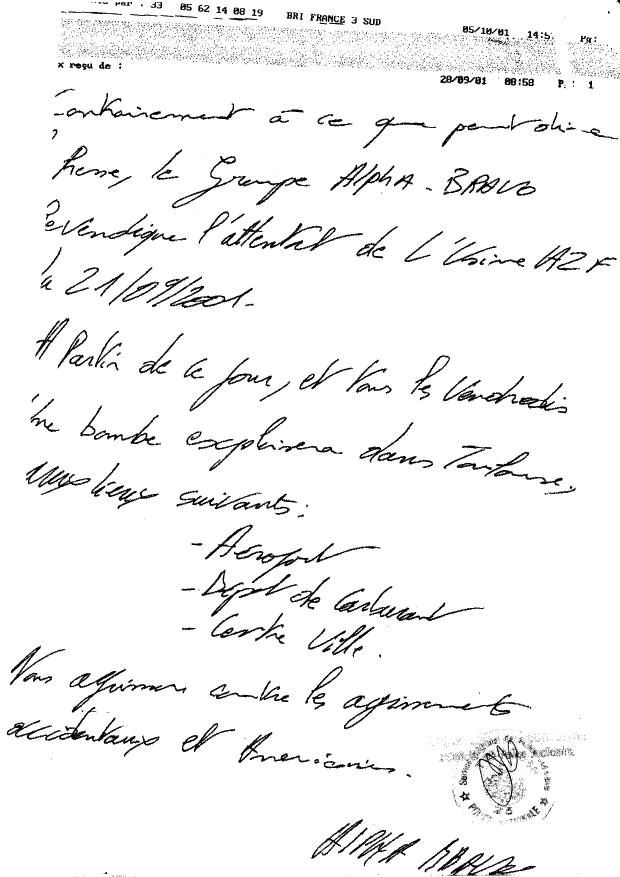 par . 33 05 62 14 08 19 BRI FRANCE 3 SUD 05/10/01 14:5 Pg:
x reçu de : 28/09/01 08:58 P. : 1
Contrairement à ce que peut dire
Presse, le Groupe AlphA - BRAVO
Revendique l'attentat de L'Usine AZF
21/09/2001.
A Partir de ce jour, et tous les Vendredis
Une bombe explosera dans Toulouse,
aux lieux suivants :
- Aéroport
- Dépot de Carburant
- Centre Ville.
Nous agissons contre les agissements
occidentaux et Americains.
POLICE NATIONALE
ALPHA BRAVO